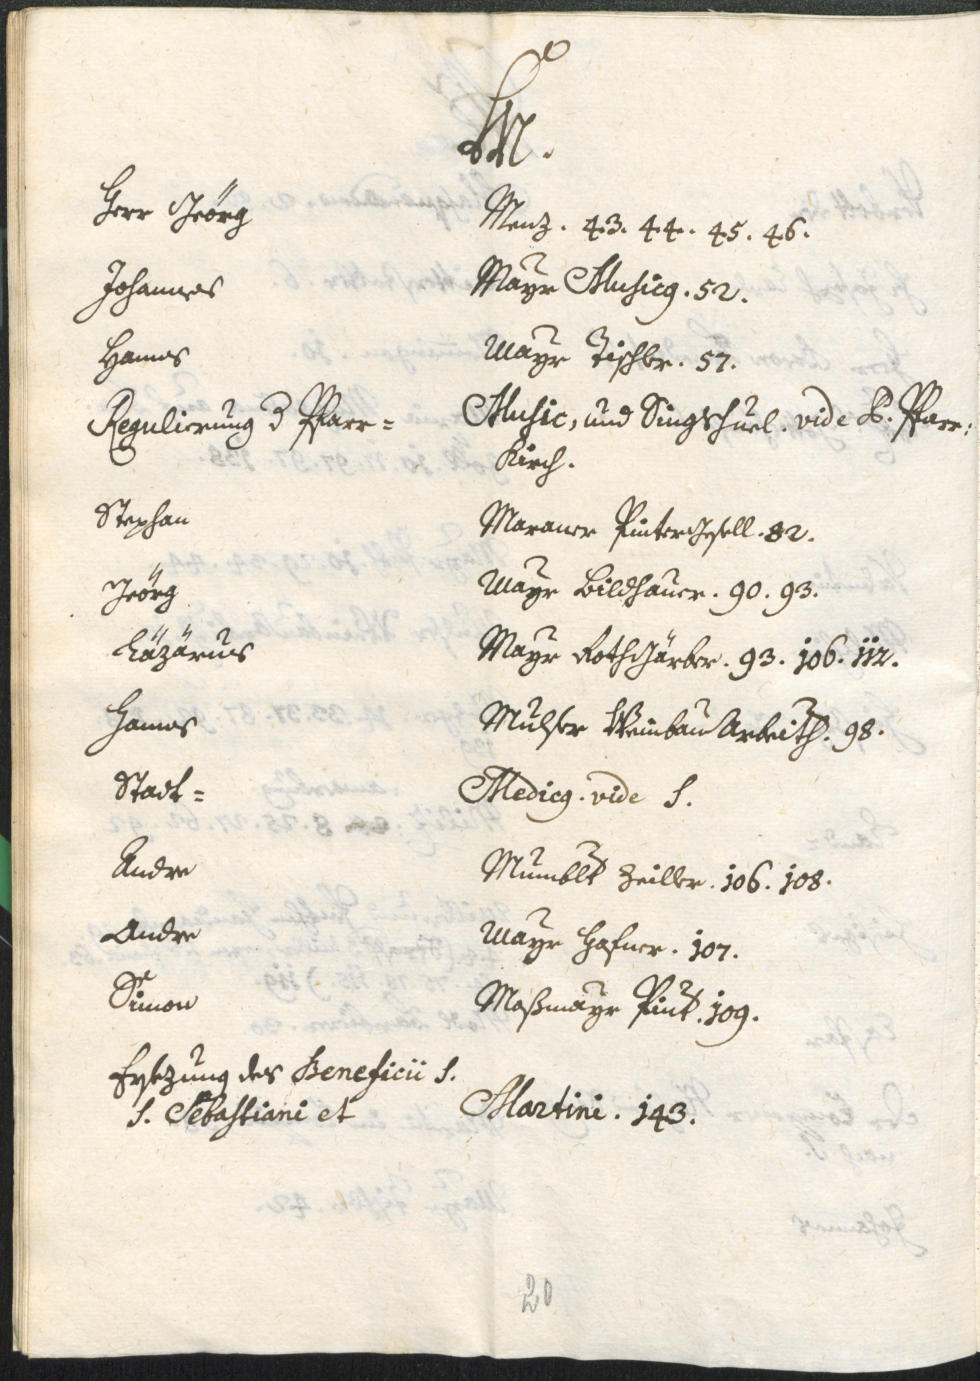 M.
Herr Jeörg Menz. 43. 44. 45. 46.
Johannes Mayr Musicq. 52.
Hannes Mayr Tischler. 57.
Regulierung d Pfarr= Music, und Singschuel. vide P. Pfarr:
Kirch.
Stephan Maraner Pinter Gsell. 82.
Jeörg Mayr Bildhauer. 90. 93.
Läzärus Mayr Rothgärber. 93. 106. 112.
Hannes Mulser Weinbau Arbeith. 98.
Stadt= Medicq. vide S.
Andre Mumblt Zeiller. 106. 108.
Andre Mayr Hafner. 107.
Simon Moßmayr Pint. 109.
Ersetzung des Beneficii S.
S. Sebastiani et Martini. 143.
20